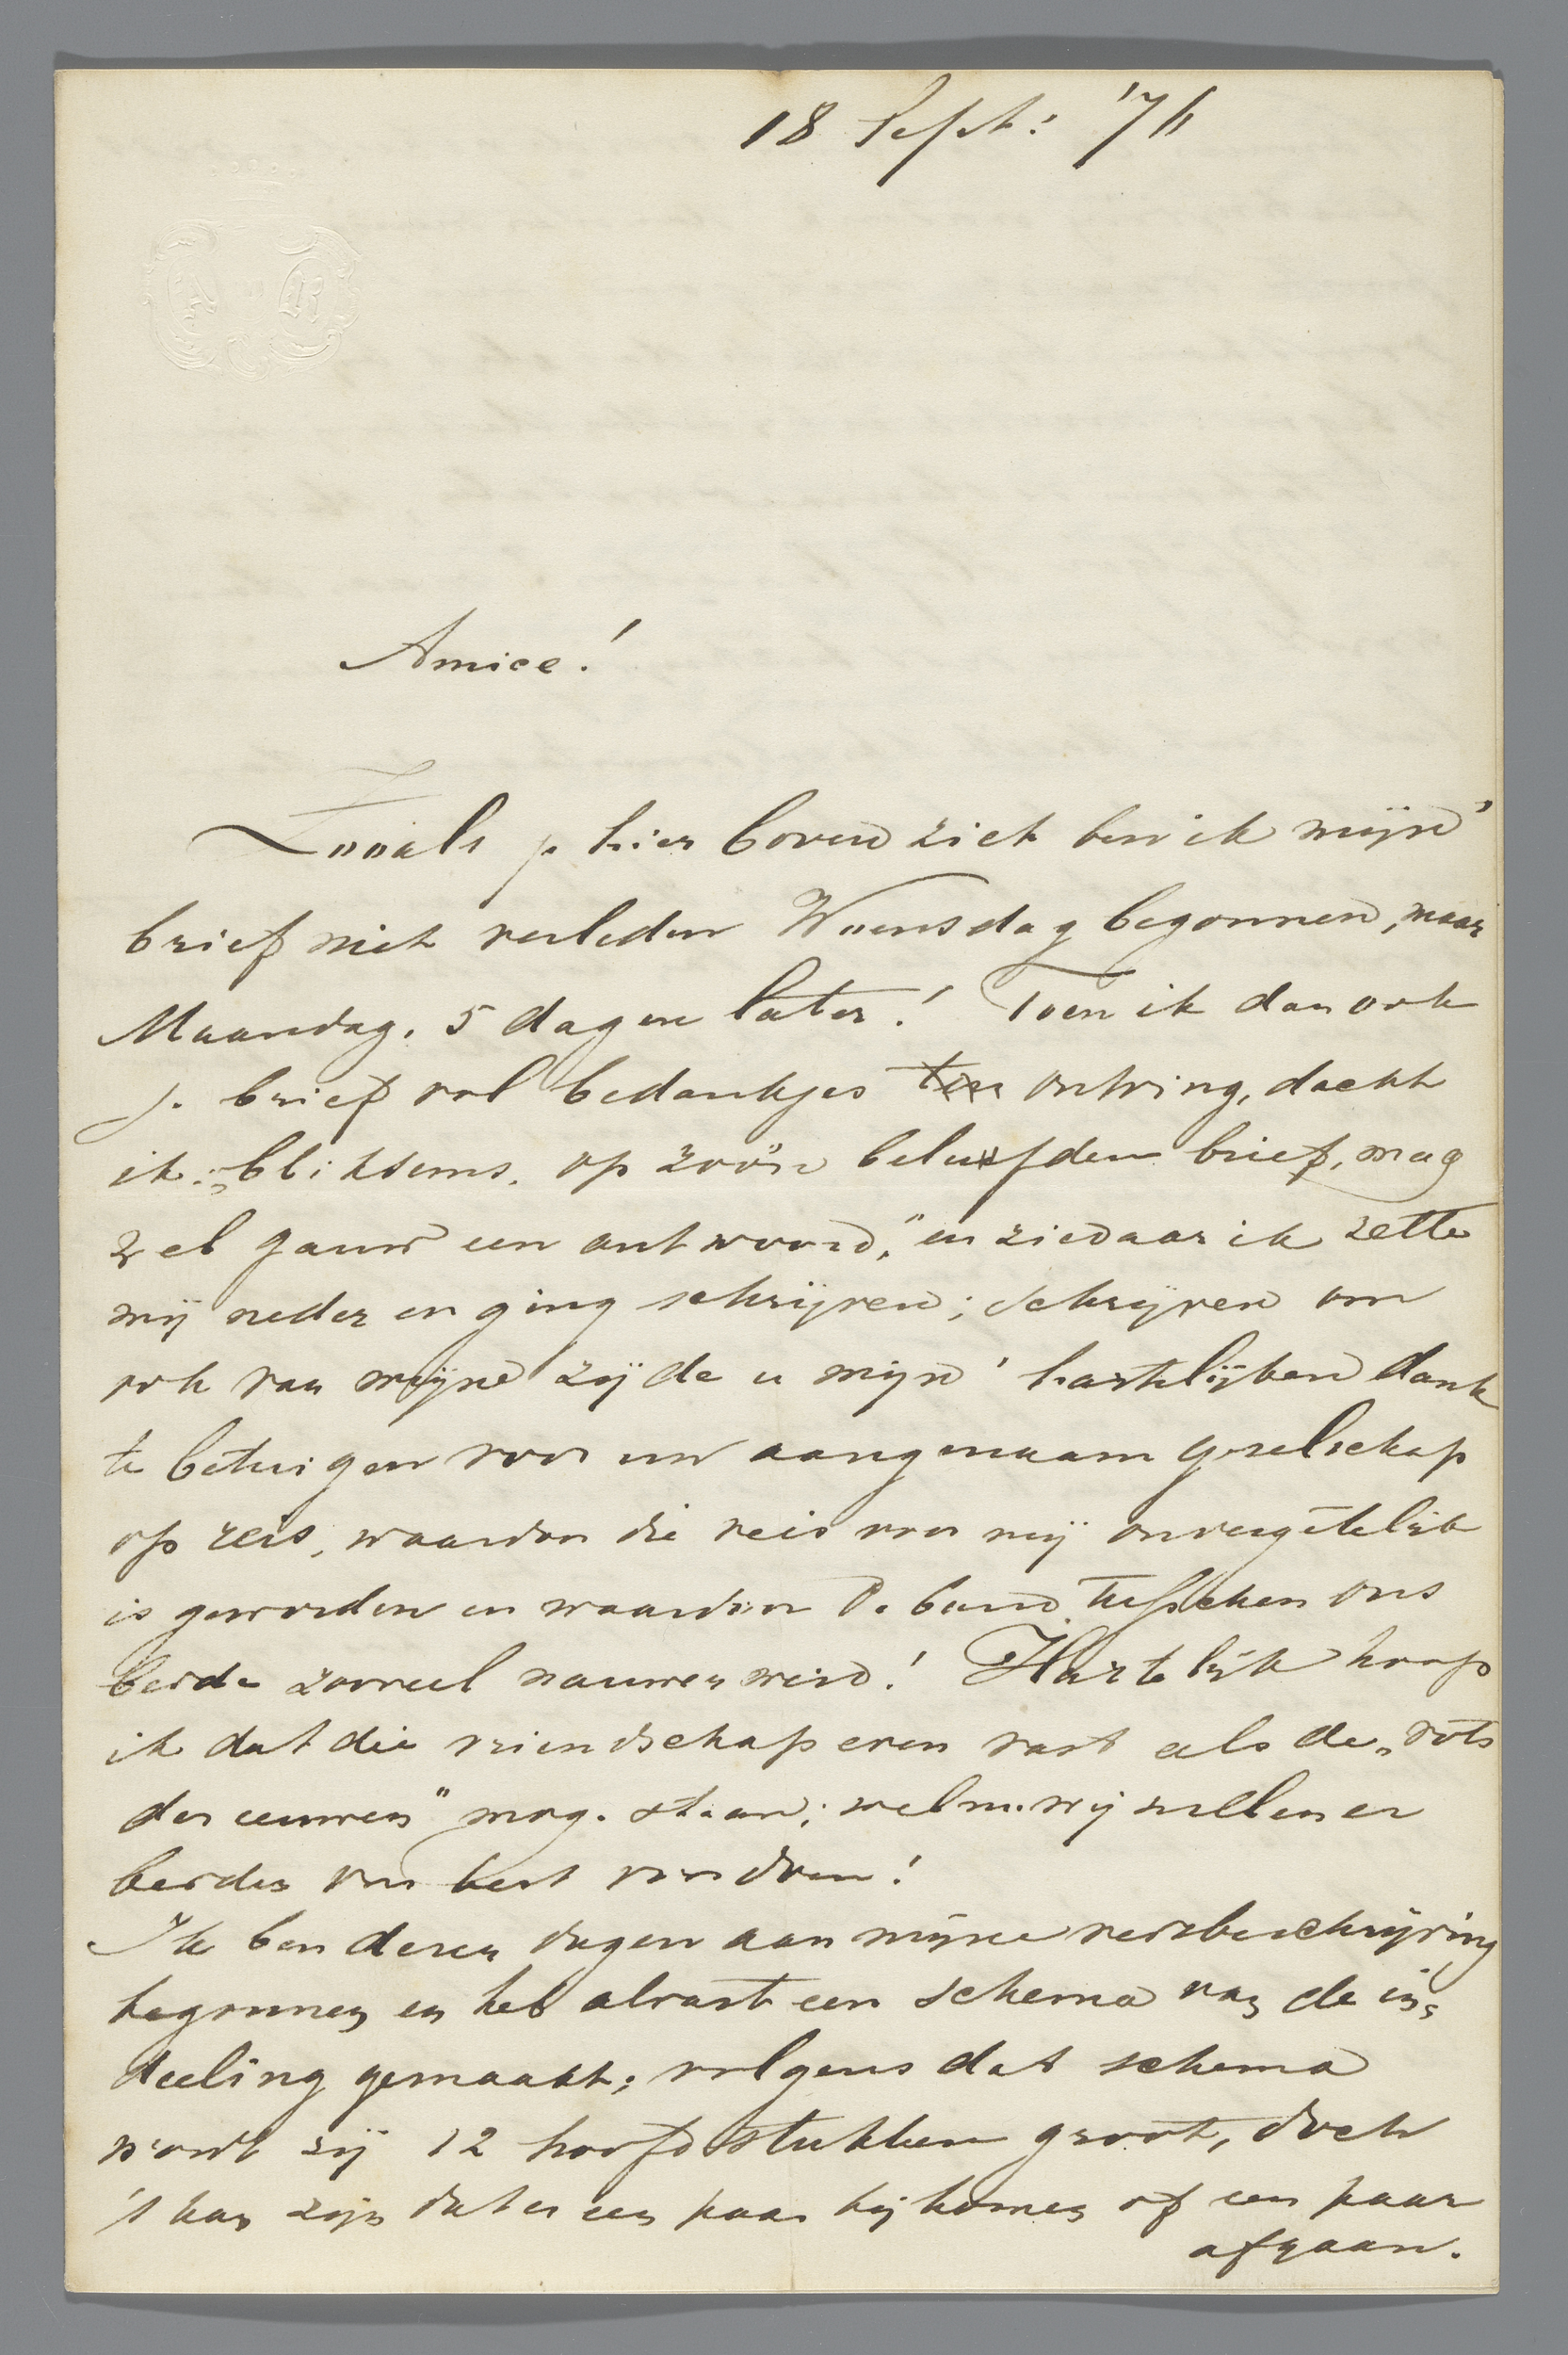 18 Sept: '76
Amice!
Zooals je hier boven ziet ben ik mijn'
brief niet verleden Woensdag begonnen, maar
Maandag, 5 dagen later! Toen ik dan ook
je brief vol bedankjes ontving, dacht
ik: „bliksems, op zoo'n beleefden brief, mag
wel gauw een antwoord," en ziedaar ik zette
mij neder en ging schrijven; schrijven om
ook van mijne zijde u mijn' hartelijken dank
te betuigen voor uw aangenaam gezelschap
op reis, waardoor die reis voor mij onvergetelijk
is geworden en waardoor de band tusschen ons
beide zooveel nauwer werd! Hartelijk hoop
ik dat die vriendschap even vast als de „rots
der eeuwen" moge staan; welnu wij zullen er
beider ons best voor doen!
Ik ben dezer dagen aan mijne reisbeschrijving
begonnen en heb alvast een schema van de in=
deeling gemaakt; volgens dat schema
wordt zij 12 hoofdstukken groot, doch
't kan zijn dat er een paar bij komen of een paar
afgaan.